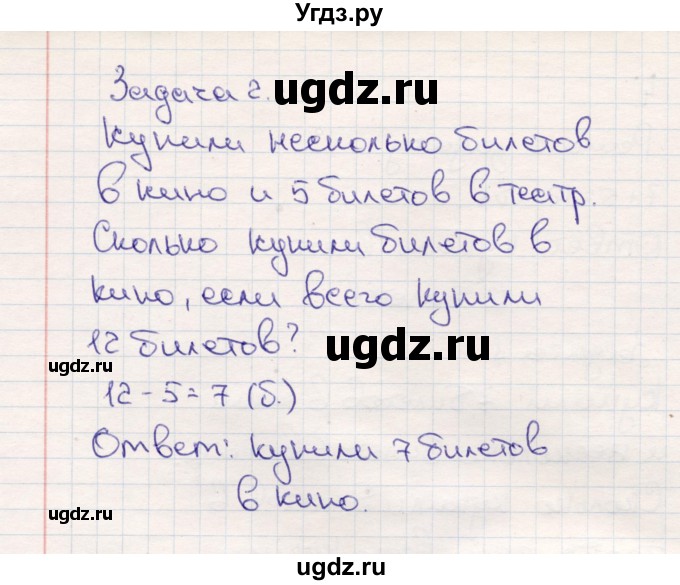 Угдз.ру
Задача 2.
ugdz.ru
Купили несколько билетов
в кино и 5 билетов в театр.
Сколько купили билетов в
кино, если всего купили
12 билетов?
ugdz.ru
ugdz.ru
12 - 5 = 7 (б.)
Ответ: купили 7 билетов
в кино.
ugdz.ru
ugdz.ru